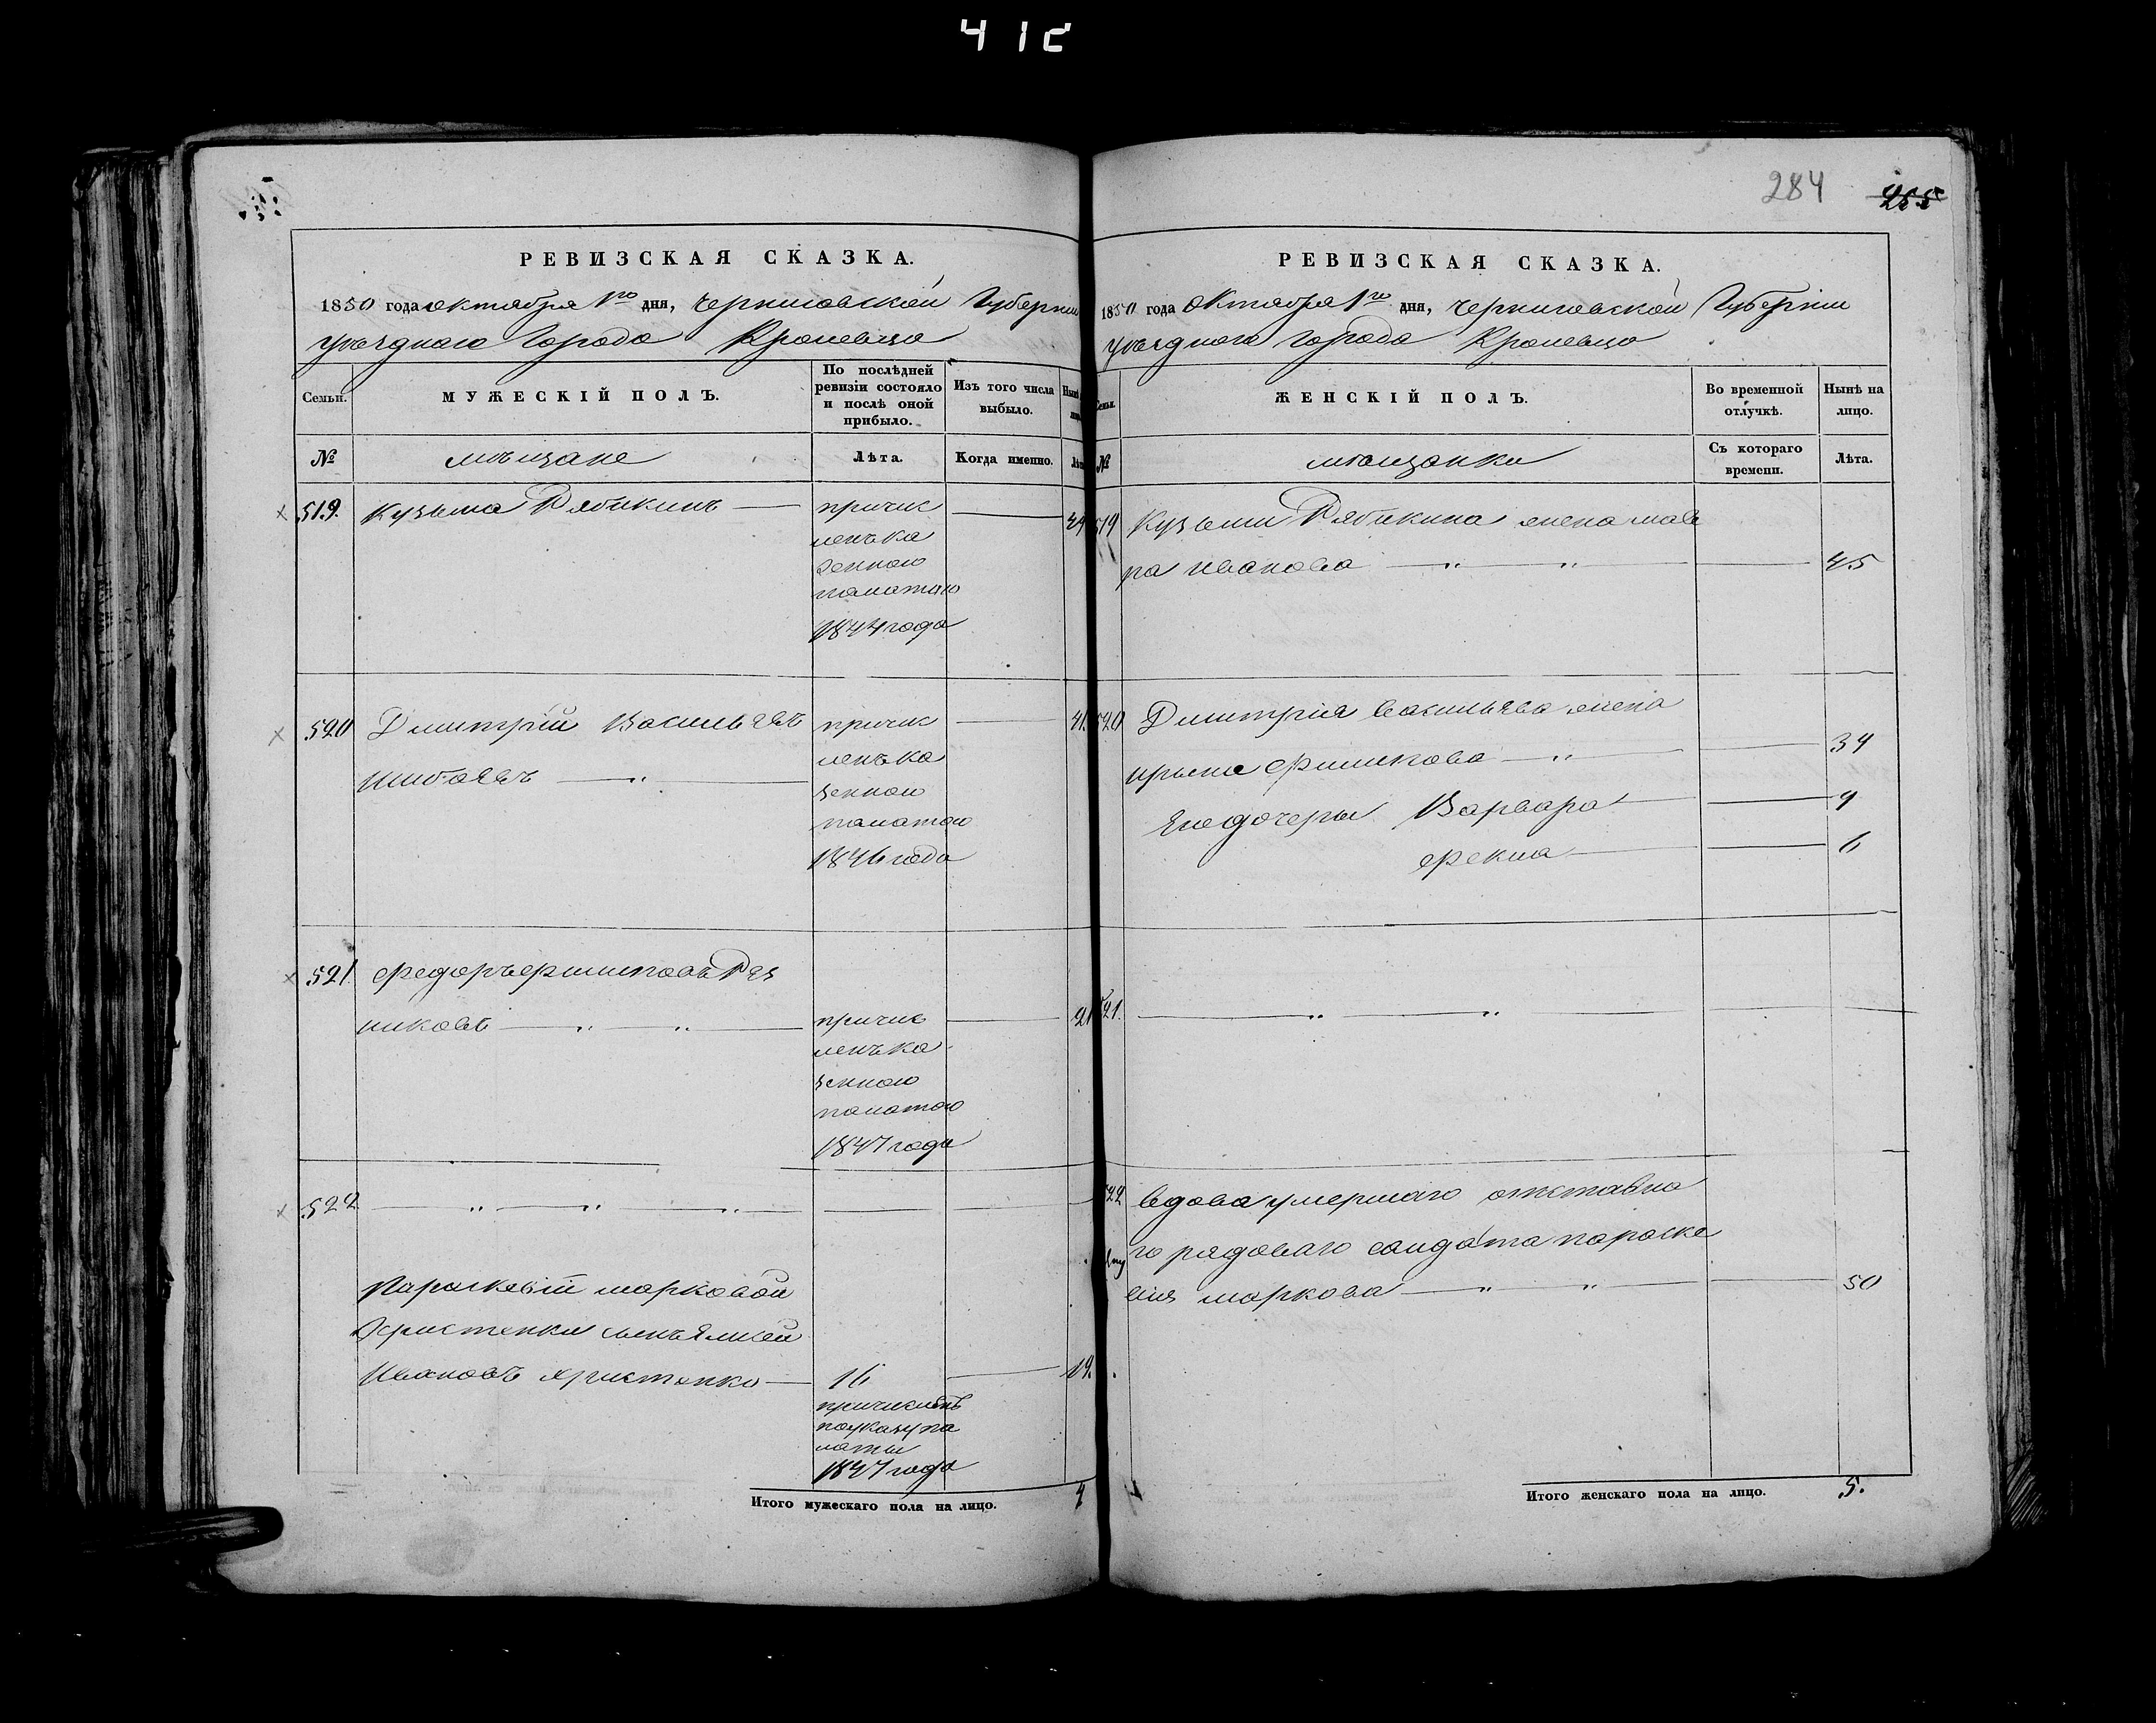 41c
РЕВИЗСКАЯ СКАЗКА.
1850 года октября 1го дня, Черниговской Губернии
уѣзднаго Города Кролевца
Семьи.
МУЖЕСКІЙ ПОЛЪ.
По послѣдней ревизіи состояло и послѣ оной прибыло.
Изъ того числа выбыло.
№
мѣщане
Лѣта.
Когда именно.
519. Кузьма Рябикинъ
причис
ленъ ка
зенною
палатою
1844 года
520 Дмитрій Васильевъ причис 41.
Шибаевъ
ленъ ка
зенною
палатою
1846 года
521. Федоръ Филиповъ Рез
никовъ причис 21
ленъ ка
зенною
палатою
1847 года
522
Парасковіи Марковой
Христенки сынъ Алисей
Ивановъ Христенко 16 19.
причисленъ
по указу па
латы
1847 года
Итого мужескаго пола на лицо. 4
284 255
РЕВИЗСКАЯ СКАЗКА.
1850 года Октября 1го дня, Черниговской Губерніи
уѣзднаго Города Кролевца
ЖЕНСКІЙ ПОЛЪ.
Во временной отлучкѣ.
Нынѣ на лицо.
№
мѣщанки
Съ котораго времени.
Лѣта.
519 Кузьмы Рябикина жена Мав
ра Иванова 45
520 Дмитрія Васильева жена
Ирина Филипова 34
Его дочеры Варвара 9
Фекла 6
521.
522 вдова умершаго отставна
го рядоваго салдата Параске
вія Маркова 50
Итого женскаго пола на лицо. 5.